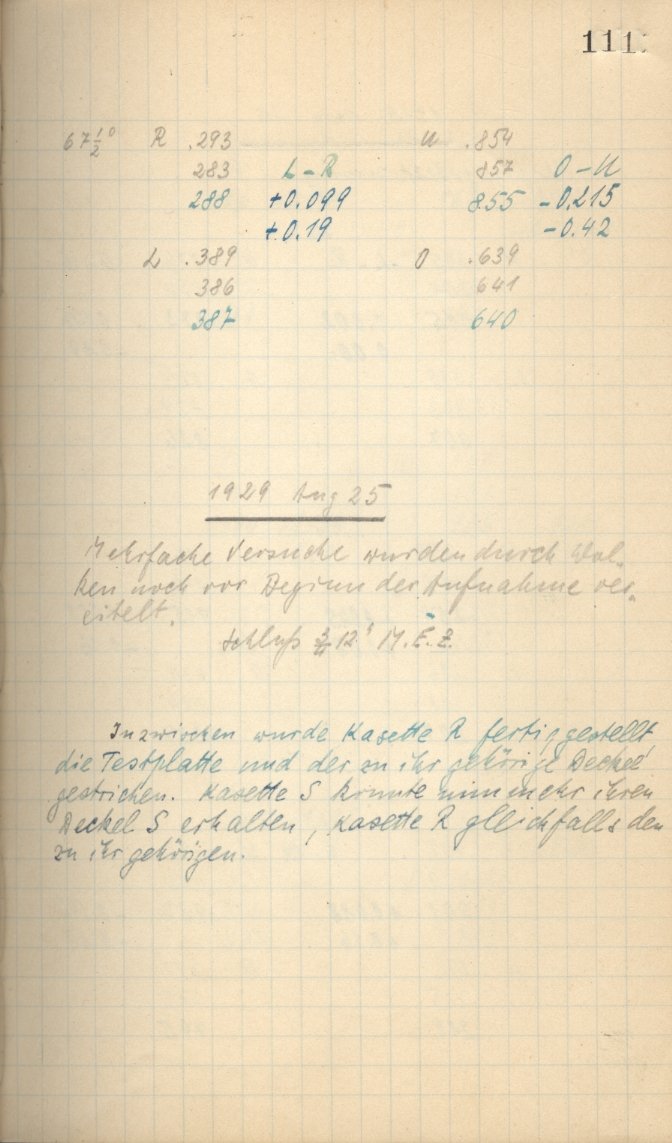 111.
67½° R .293 U .854
283 L-R 857 O-U
288 +0.099 855 -0.215
+0.19 -0.42
L .389 O .639
386 641
387 640
1929 Aug 25
Mehrfache Versuche wurden durch Wol-
ken noch vor Beginn der Aufnahme ver-
eitelt.
Schluß ¾12h M.E.Z.
Inzwischen wurde Kasette R fertiggestellt
die Testplatte und der zu ihr gehörige Deckel
gestrichen. Kasette S konnte nunmehr ihren
Deckel S erhalten, Kasette R gleichfalls den
zu ihr gehörigen.